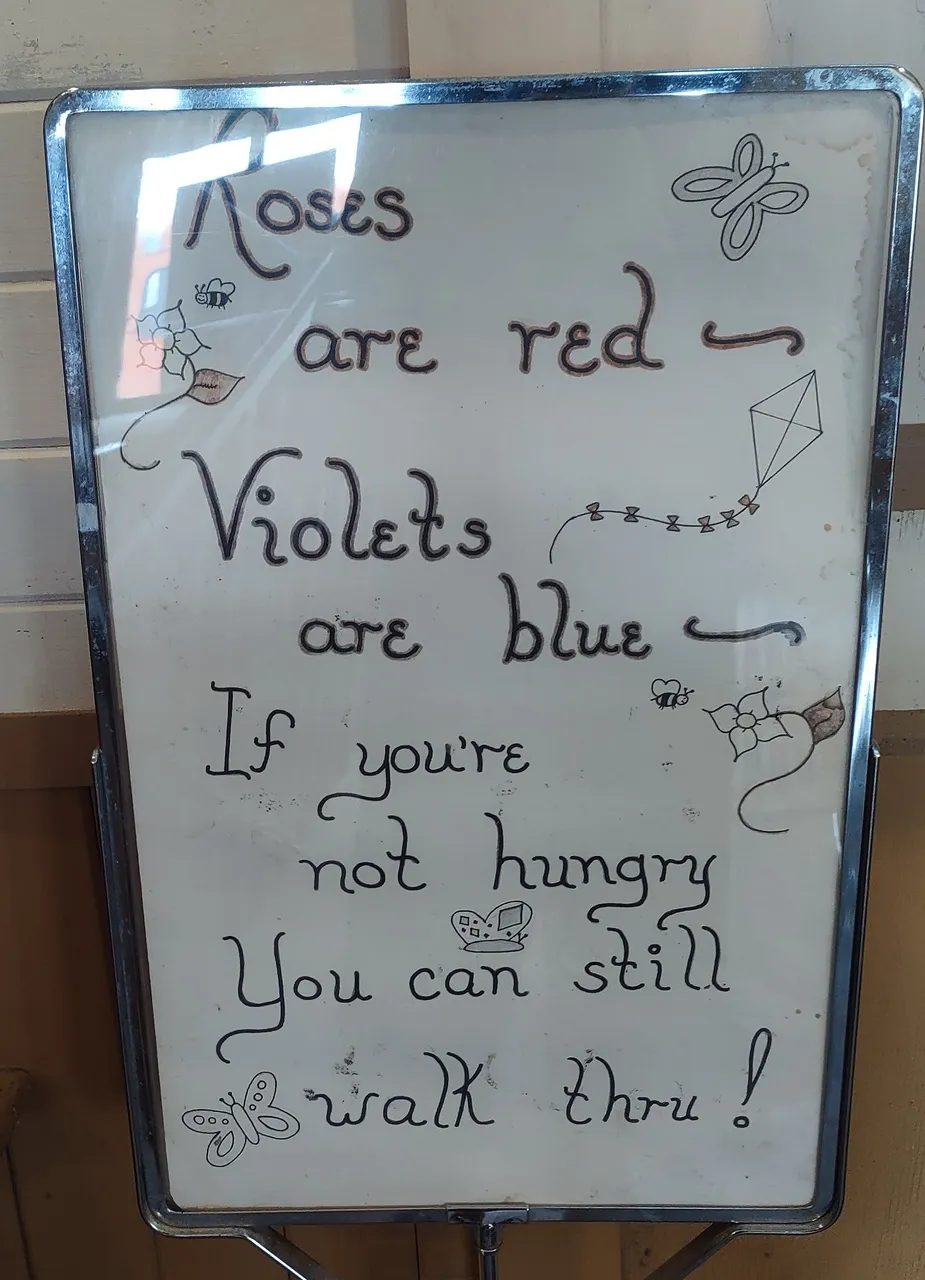 Roses
are red ~
Violets
are blue ~
If you're
not hungry
You can still
walk thru!